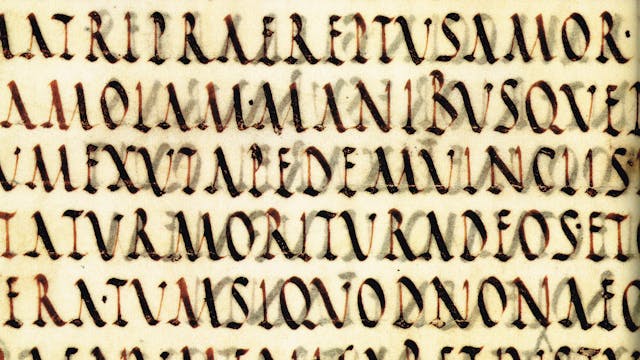 MATRIPRAEREPTVSAMOR·
AMOLAM·MANIBVSQVE
VMEXVTAPEDEMVINCLIS
TATVRMORITVRADEOS·ETC
ERA·TVMSIQVODNONAEQ